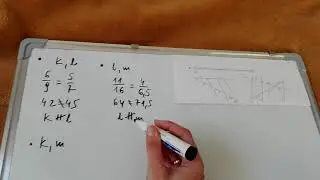 • k, l
6/9 = 5/7
42 ≠ 45
k ∦ l
• l, m
11/16 = 4/6,5
64 ≠ 71,5
l ∦ m
• k, m